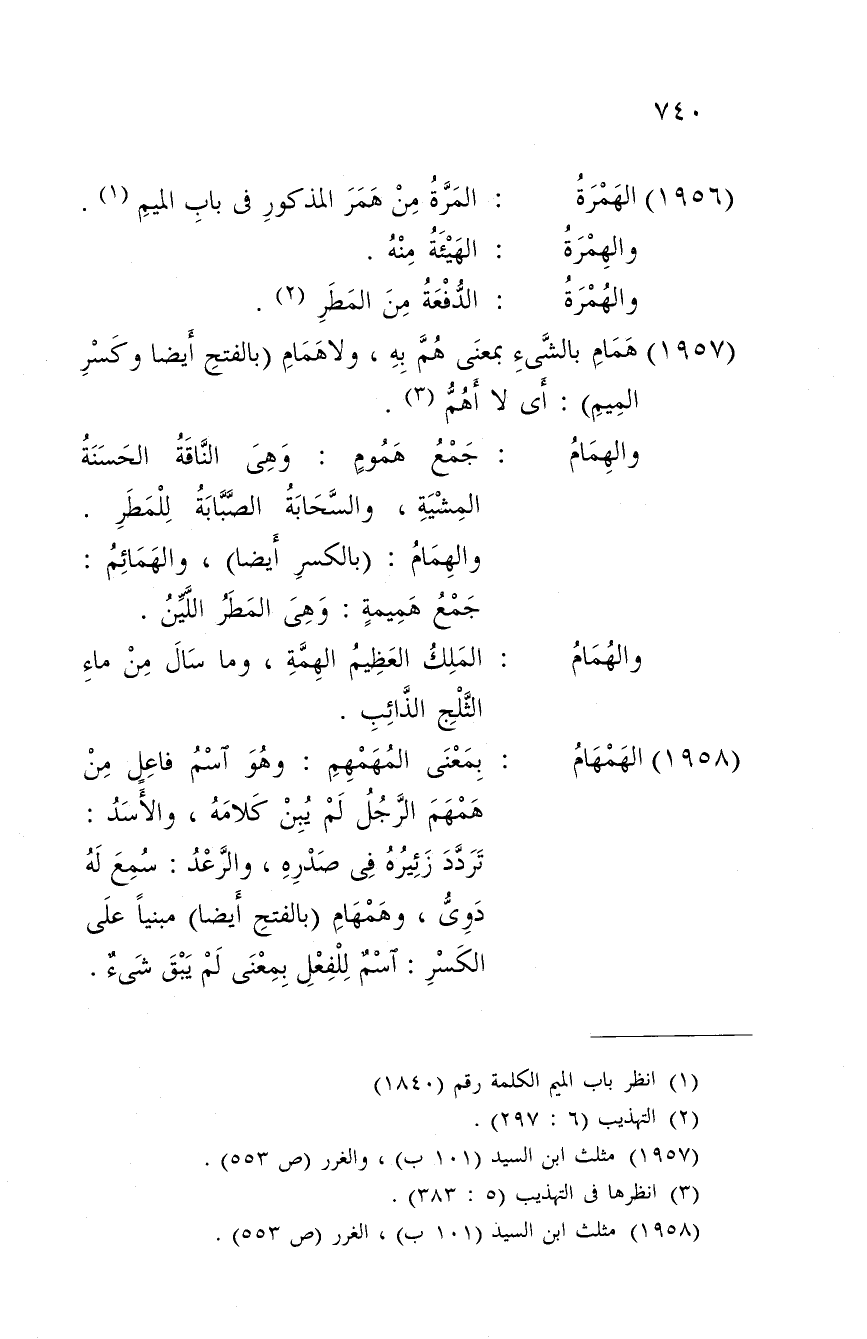 ٧٤٠
(١٩٥٦) الهَمْرَةُ : المَرَّةُ مِنْ هَمَرَ المذكورِ فى بابِ الميمِ (١) .
والهِمْرَةُ : الهَيْئَةُ مِنْهُ .
والهُمْرَةُ : الدُّفْعَةُ مِنَ المَطَرِ (٢) .
(١٩٥٧) هَمَامِ بالشَّىءِ بمعنَى هُمَّ بِهِ ، ولاهَمَامِ (بالفتحِ أَيضا وكَسْرِ
المِيمِ) : أَى لا أَهُمُّ (٣) .
والهِمَامُ : جَمْعُ هَمُومٍ : وَهِىَ النَّاقَةُ الحَسَنَةُ
المِشْيَةِ ، والسَّحَابَةُ الصَّبَّابَةُ لِلْمَطَرِ .
والهِمَامُ : (بالكسرِ أَيضا) ، والهَمَائِمُ :
جَمْعُ هَمِيمةٍ : وَهِىَ المَطَرُ اللَّيِّنُ .
والهُمَامُ : المَلِكُ العَظِيمُ الهِمَّةِ ، وما سَالَ مِنْ ماءِ
الثَّلْجِ الذَّائِبِ .
(١٩٥٨) الهَمْهَامُ : بِمَعْنَى المُهَمْهِمِ : وهُوَ ٱسْمُ فاعِلٍ مِنْ
هَمْهَمَ الرَّجُلُ لَمْ يُبِنْ كَلامَهُ ، والأَسَدُ :
تَرَدَّدَ زَئِيرُهُ فِى صَدْرِهِ ، والرَّعْدُ : سُمِعَ لَهُ
دَوِىٌّ ، وهَمْهَامِ (بالفتحِ أَيضا) مبنياً علَى
الكَسْرِ : ٱسْمٌ لِلْفِعْلِ بِمِعْنَى لَمْ يَبْقَ شَىءٌ .
(١) انظر باب الميم الكلمة رقم (١٨٤٠)
(٢) التهذيب (٦ : ٢٩٧) .
(١٩٥٧) مثلث ابن السيد (١٠١ ب) ، والغرر (ص ٥٥٣) .
(٣) انظرها فى التهذيب (٥ : ٣٨٣) .
(١٩٥٨) مثلث ابن السيد (١٠١ ب) ، الغرر (ص ٥٥٣) .